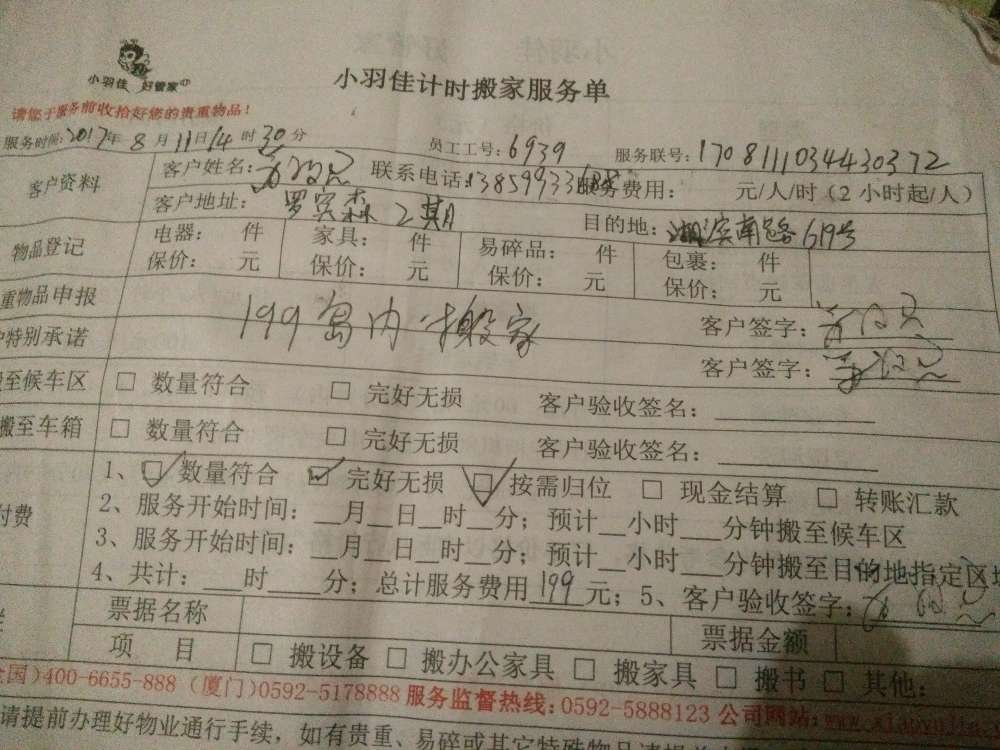 小羽佳 好管家
小羽佳计时搬家服务单
请您于服务前收拾好您的贵重物品！
服务时间：2017年8月11日14时30分 员工工号：6939 服务联号：1708111034430372
客户资料 客户姓名： 联系电话：13859933 服务费用： 元/人/时（2小时起/人）
客户地址： 罗宾森2期 目的地：湖滨南路619号
物品登记 电器： 件 家具： 件 易碎品： 件 包裹： 件
保价： 元 保价： 元 保价： 元 保价： 元
重物品申报 199岛内搬家 客户签字：
特别承诺 客户签字：
搬至候车区 □ 数量符合 □ 完好无损 客户验收签名：
搬至车箱 □ 数量符合 □ 完好无损 客户验收签名：
1、☑数量符合 ☑ 完好无损 ☑ 按需归位 □ 现金结算 □ 转账汇款
2、服务开始时间：__月__日__时__分；预计__小时___分钟搬至候车区
付费 3、服务开始时间：__月__日__时__分；预计__小时___分钟搬至目的地指定区
4、共计：___时____分；总计服务费用199元；5、客户验收签字：
票据名称 票据金额
项 目 □ 搬设备 □ 搬办公家具 □ 搬家具 □ 搬书 □ 其他：
国)400-6655-888 (厦门)0592-5178888 服务监督热线：0592-5888123 公司网站：www.xiaoyujia.
请提前办理好物业通行手续，如有贵重、易碎或其它特殊物品请提前